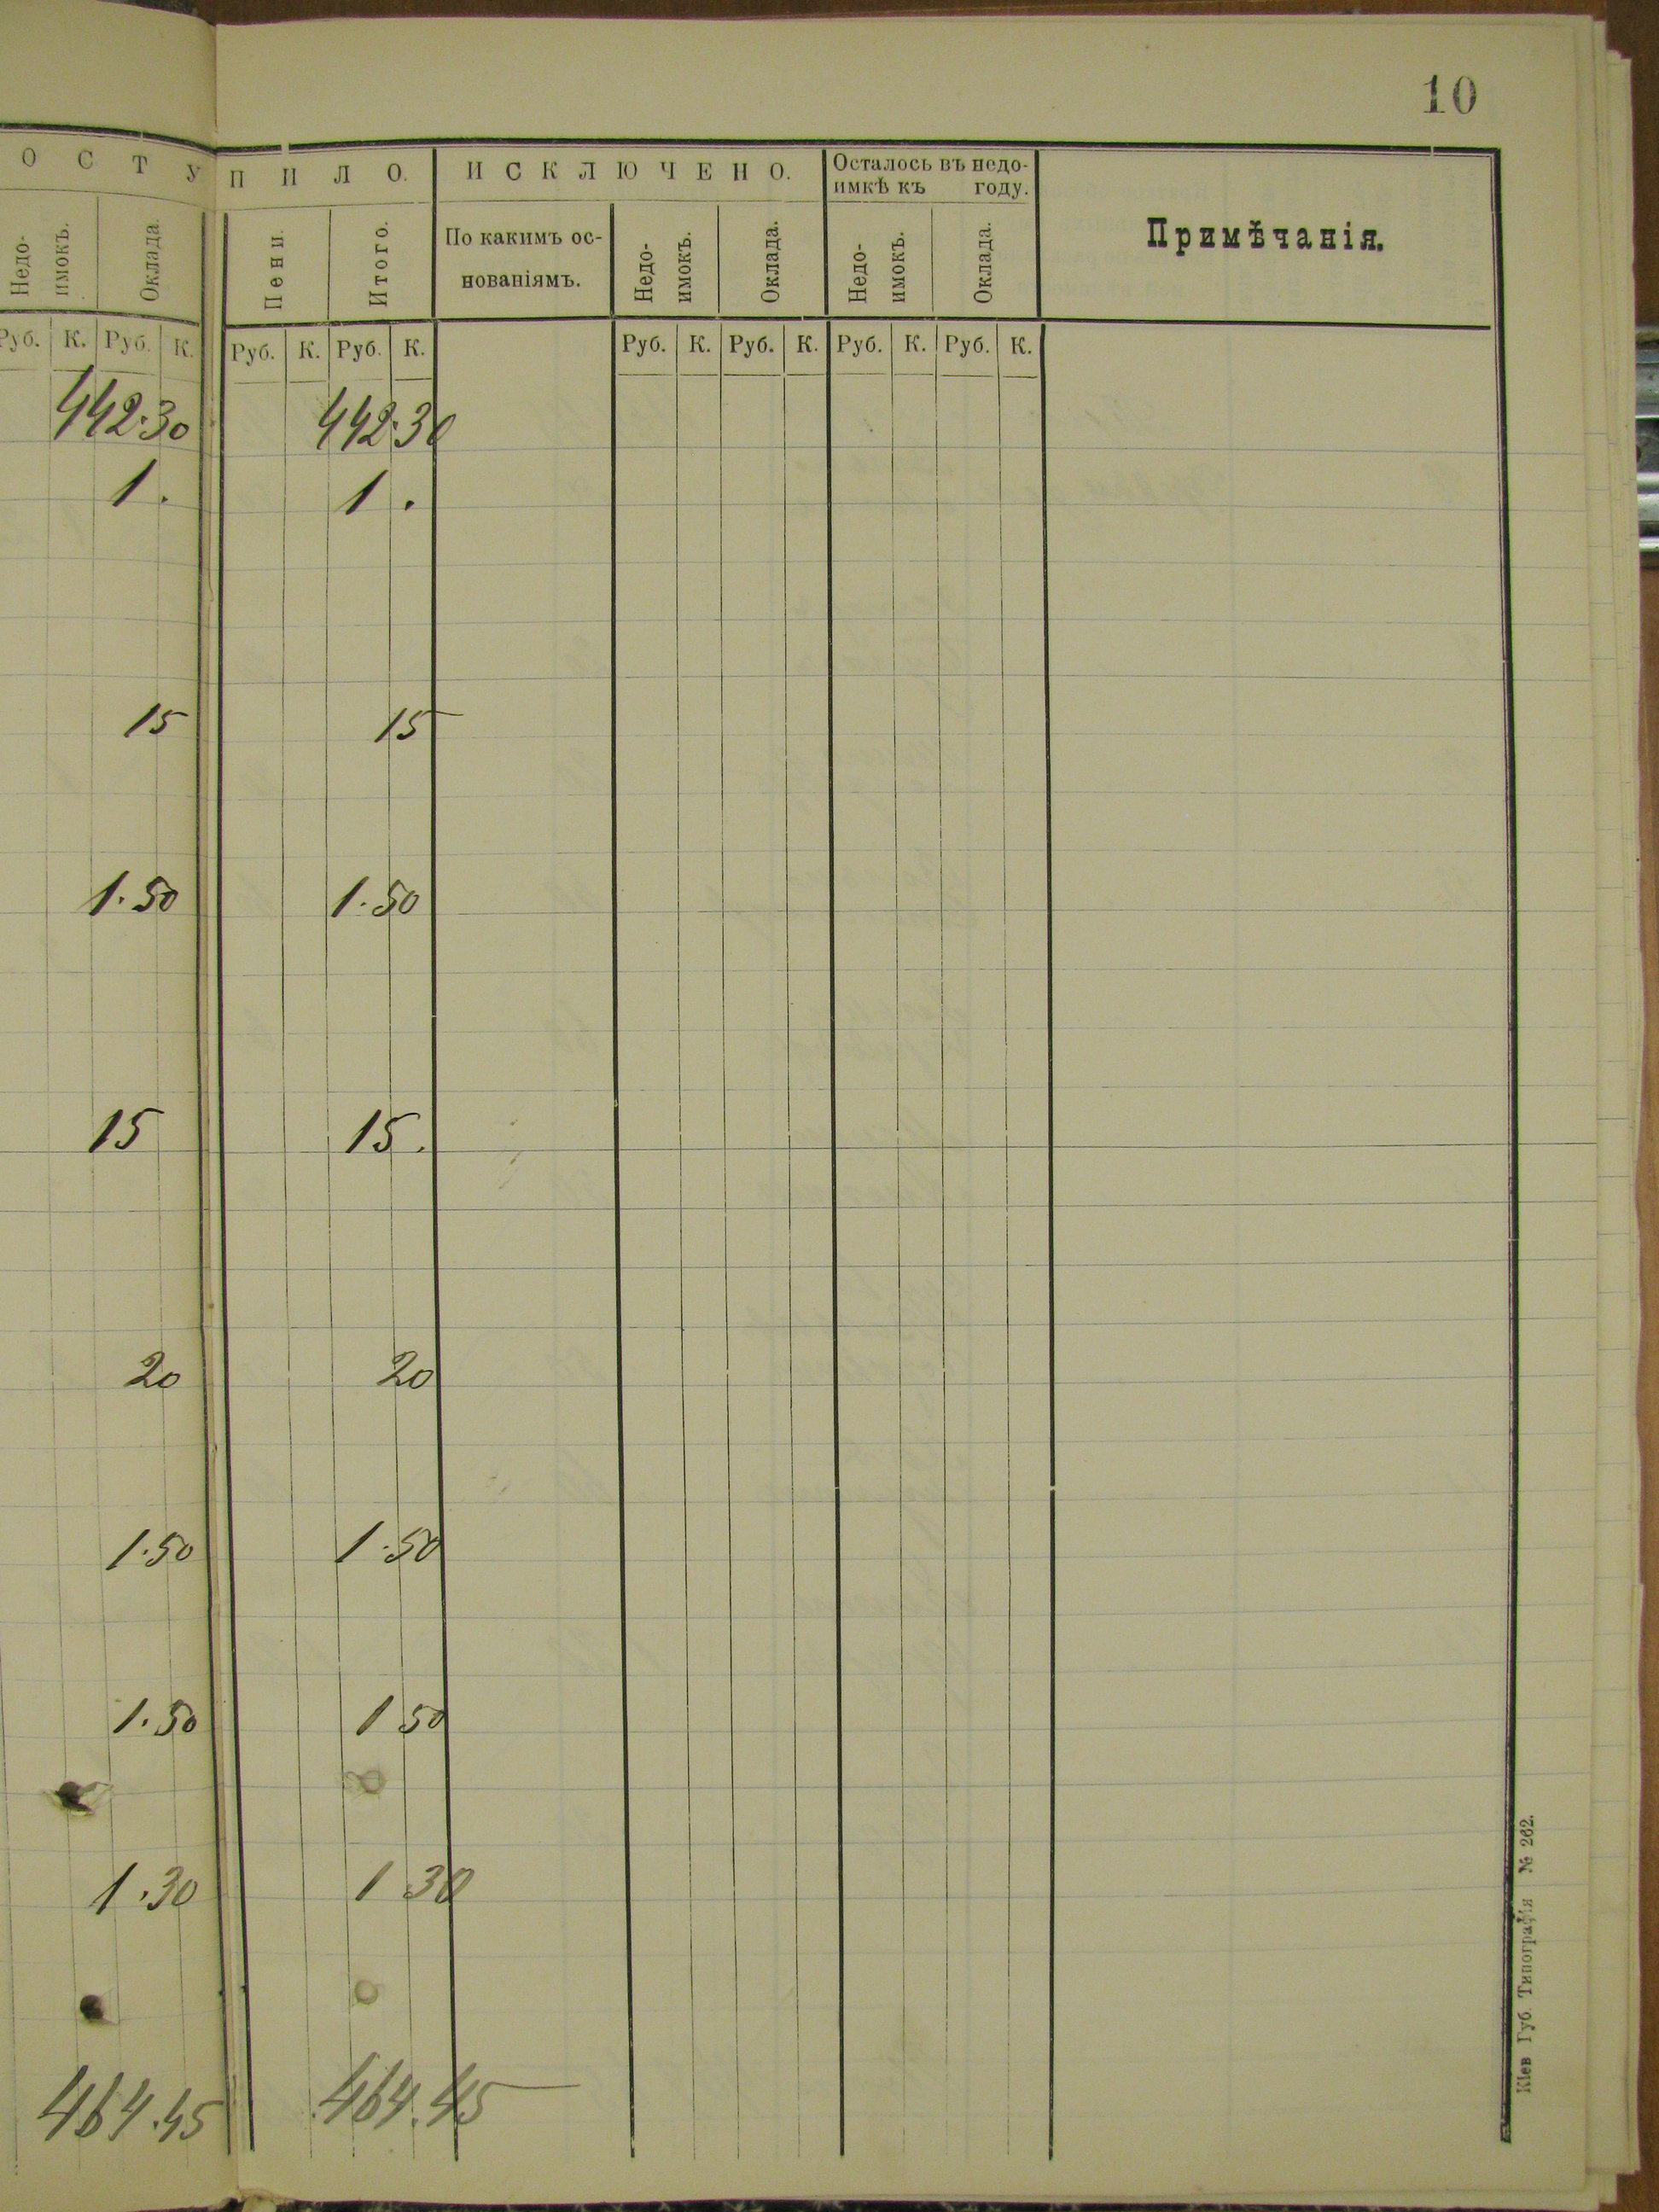 10
О С Т У П И Л О.
И С К Л Ю Ч Е Н О.
Осталось въ недо-
имкѣ къ году.
Примѣчанія.
Недо-
имокъ.
Оклада.
Пени.
Итого.
По какимъ ос-
нованіямъ.
Недо-
имокъ.
Оклада.
Недо-
имокъ.
Оклада.
Руб. К. Руб. К. Руб. К. Руб. К. Руб. К. Руб. К. Руб. К. Руб. К.
442.30 442.30
1. 1.
15 15
1.50 1.50
15 15.
20 20
1.50 1.50
1.50 1 50
1.30 1 30
464.45 464.45
Кіев Губ. Типографія № 262.